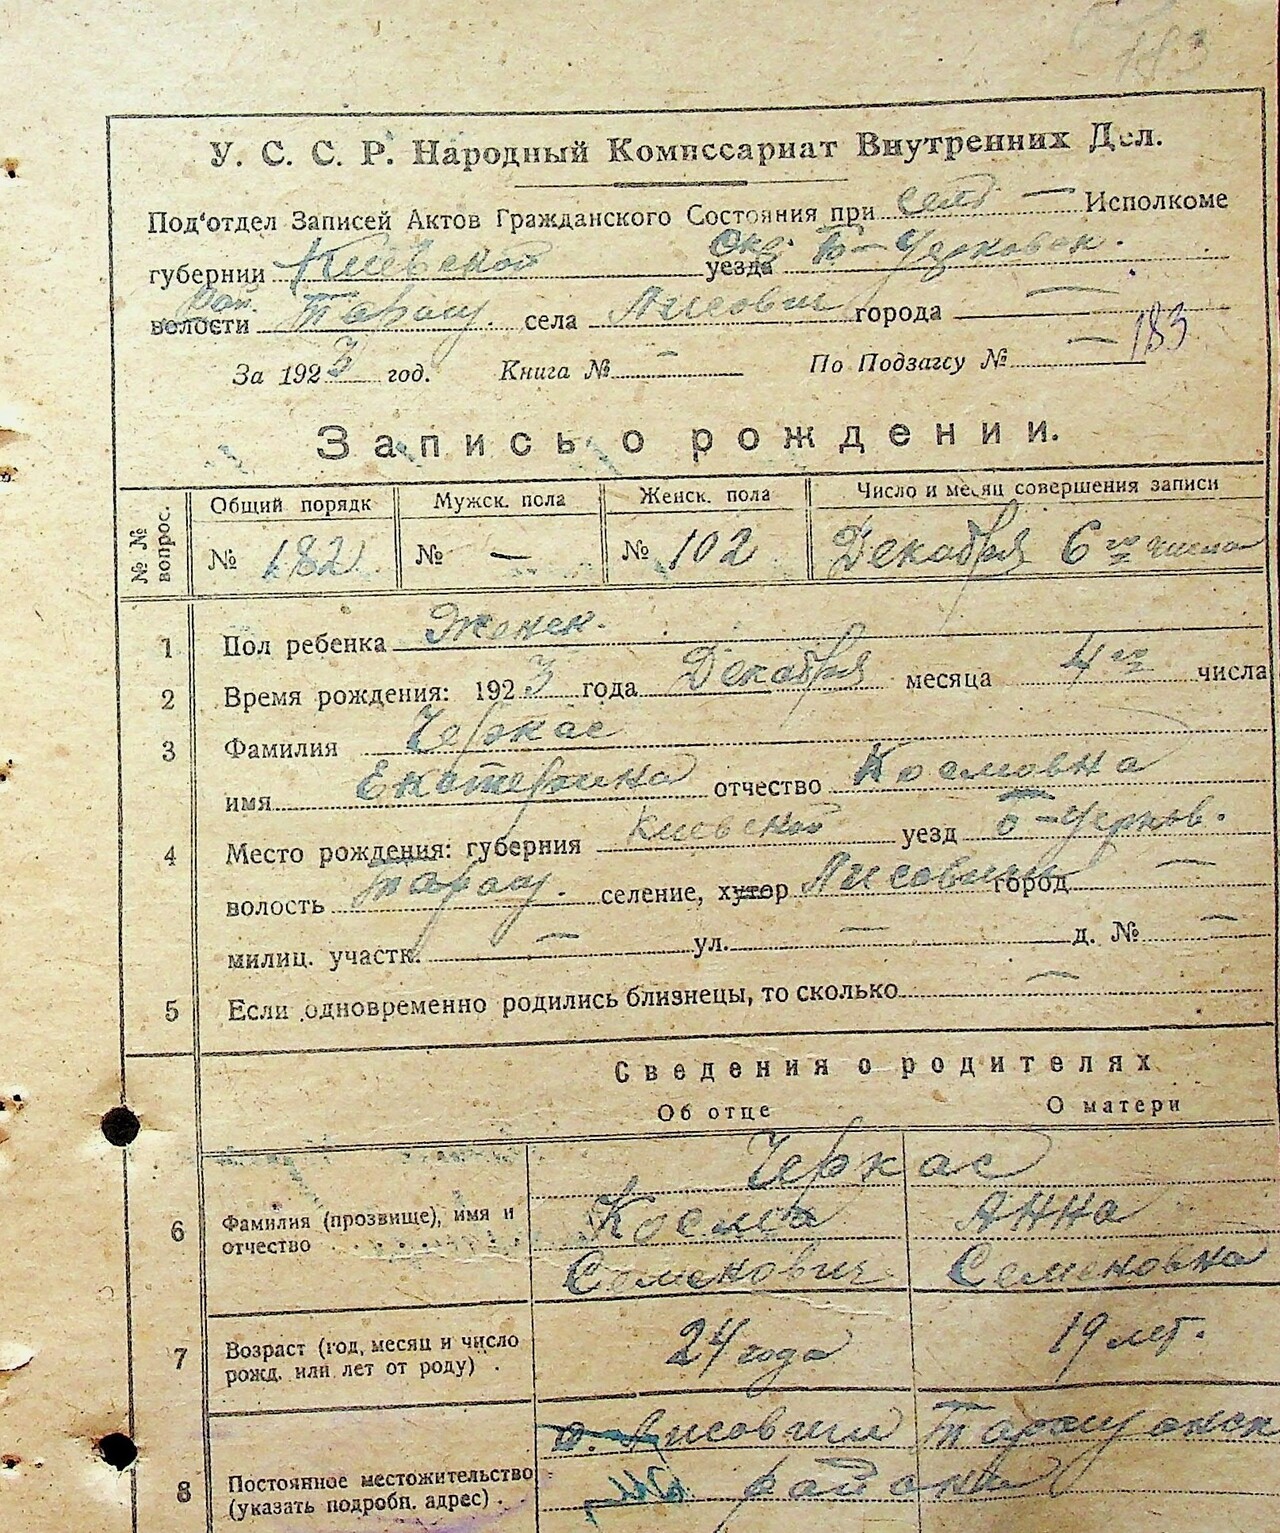 183
У. С. С. Р. Народный Комиссариат Внутренних Дел.
Под‘отдел Записей Актов Гражданского Состояния при сель — Исполкоме
губернии Киевской уезда Окр. Б-Церковск.
волости Рай. Таращ. села Лисович города —
За 1923 год. Книга № — По Подзагсу № — 183
Запись о рождении.
№ № вопрос. Общий порядк Мужск. пола Женск. пола Число и месяц совершения записи
№ 182 № — № 102 Декабря 6го числа
1 Пол ребенка Женск.
2 Время рождения: 1923 года Декабря месяца 4го числа
3 Фамилия Черкас
имя Екатерина отчество Космовна
4 Место рождения: губерния Киевской уезд Б-Церков.
волость Таращ. селение, хутор Лисовичи город —
милиц. участк. — ул. — д. № —
5 Если одновременно родились близнецы, то сколько —
Сведения о родителях
Об отце О матери
Черкас
6 Фамилия (прозвище), имя и отчество Косма Анна
Семенович Семеновна
7 Возраст (год, месяц и число рожд. или лет от роду) . 24 года 19 лет.
с. Лисовичи Таращанск
8 Постоянное местожительство (указать подробн. адрес) . района